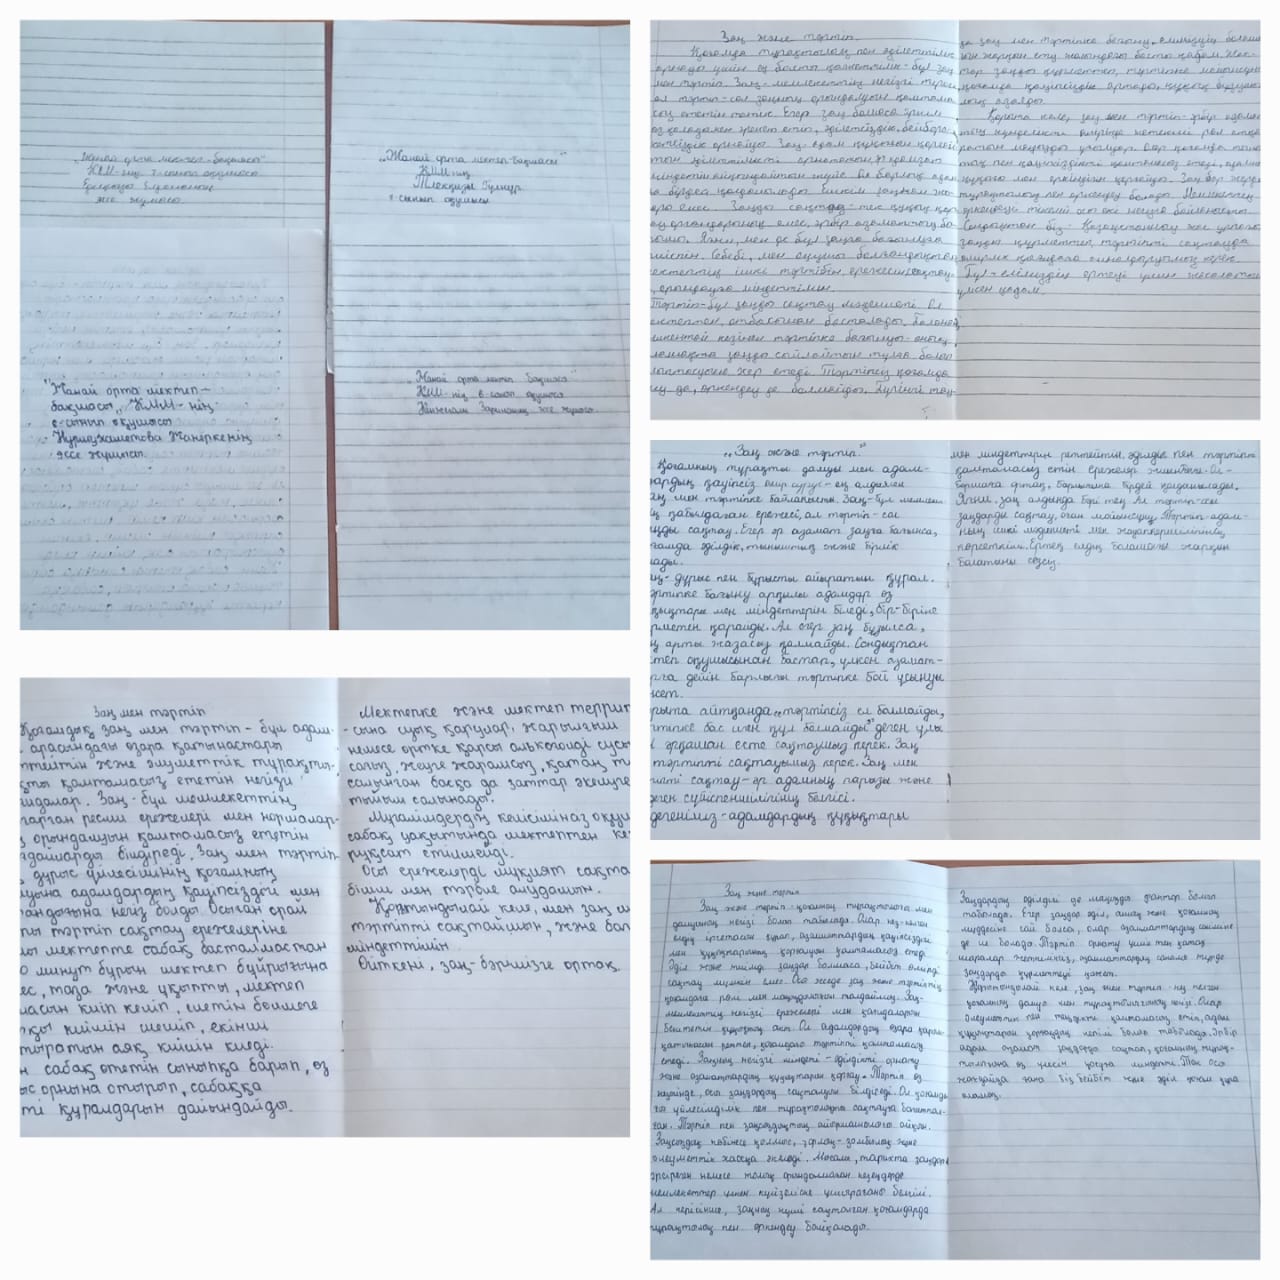 "Жанай орта мектеп-бақшасы"
КММ-нің 7-сынып оқушысы
эссе жұмысы
"Жанай орта мектеп-бақшасы"
КММ-нің
Гүлнұр
сынып оқушысы
"Жанай орта мектеп-
бақшасы" КММ-нің
8-сынып оқушысы
Нурмухаметова Жанеркенің
эссе жұмысы.
"Жанай орта мектеп бақшасы"
КММ-нің 8-сынып оқушысы
эссе жұмысы
Заң және тәртіп.
Қоғамда тұрақтылық пен әділеттілік
орнауы үшін ең басты қажеттілік - бұл заң
мен тәртіп. Заң - мемлекеттің негізгі тірегі,
ал тәртіп - сол заңның орындалуын қамтама
сыз ететін тетік. Егер заң болмаса әркім
өз қалағанын істеп, әділетсіздік, бейбере
кетсіздік орнайды. Заң - адам құқығын қорғай
тын әділеттілікті орнататын, қоғамдағы
міндетті айқындайтын жүйе. Ол барлық адам
ға бірдей қолданылады. Ешкім заңнан жо
ғары емес. Заңды сақтау - тек құқық қор
ғау органдарының емес, әрбір азаматтың бо
рышы. Яғни, мен де бұл заңға бағынуға
тиіспін. Себебі, мен оқушы болғандықтан
мектептің ішкі тәртібін, ережесін сақтау
, орындауға міндеттімін.
Тәртіп - бұл заңды сақтау мәдениеті. Ол
мектептен, отбасынан басталады. Баланың
кезінен тәртіпке бағынуы - оның
болашақта заңды сыйлайтын тұлға болып
қалыптасуына жер етеді. Тәртіпсіз қоғамда
даму да, өркендеу де болмайды. Бүгінгі таң
да заң мен тәртіпке бағыну, еліміздің болаша
ғын жарқын ету жолындағы басты қадам. Жас
тар заңды құрметтеп, тәртіпке мойынсұнса
қоғамда қауіпсіздік артады, құқық бұзушы
лық азаяды.
Қорыта келе, заң мен тәртіп - әрбір адам
ның күнделікті өмірінде маңызды рөл атқа
ратын маңызды ұғымдар. Олар қоғамда тыныш
тық пен қауіпсіздікті қамтамасыз етеді, адамның
құқығы мен еркіндігін қорғайды. Заң бар жерде
тұрақтылық пен өркендеу болады. Мемлекеттің
өркендеуі тікелей осы екі негізге байланысты.
Сондықтан біз - Қазақстанның жас ұрпағы
заңды құрметтеп, тәртіпті сақтауды
өмірлік қағидаға айналдыруымыз керек.
Бұл - еліміздің ертеңі үшін жасалатын
үлкен қадам.
"Заң және тәртіп."
Қоғамның тұрақты дамуы мен адам-
дардың қауіпсіз өмір сүруі - ең алдымен
заң мен тәртіпке байланысты. Заң - бұл мемлекет
тің қабылдаған ережесі, ал тәртіп - сол
заңды сақтау. Егер әр азамат заңға бағынса,
қоғамда әділдік, тыныштық және бірлік
болады.
Заң - дұрыс пен бұрысты айыратын құрал.
Тәртіпке бағыну арқылы адамдар өз
құқықтары мен міндеттерін біледі, бір-біріне
құрметпен қарайды. Ал егер заң бұзылса,
оның арты жазасыз қалмайды. Сондықтан
мектеп оқушысынан бастап, үлкен азамат-
тарға дейін барлығы тәртіпке бой ұсынуы
қажет.
Қорыта айтқанда, "тәртіпсіз ел болмайды,
тәртіпке бас иген құл болмайды" деген ұлы
сөзді әрқашан есте сақтауымыз керек. Заң
мен тәртіпті сақтауымыз керек. Заң мен
тәртіпті сақтау - әр адамның парызы және
елге деген сүйіспеншілігінің белгісі.
дегеніміз - адамдардың құқықтары
мен міндеттерін реттейтін, әділдік пен тәртіпті
қамтамасыз етін ережелер жиынтығы. Ол -
баршаға ортақ, барлығына бірдей қолданылады.
Яғни, заң алдында бәрі тең. Ал тәртіп - осы
заңдарды сақтау, оған мойынсұну. Тәртіп - адам-
ның ішкі мәдениеті мен жауапкершілігінің
көрсеткіші. Ертең елдің болашағы жарқын
болатыны сөзсіз.
Заң мен тәртіп
Қоғамдық заң мен тәртіп - бұл адам-
арасындағы өзара қатынастары
реттейтін және әлуметтік тұрақты-
қты қамтамасыз ететін негізгі
қағидалар. Заң - бұл мемлекеттің
шығарған ресми ережелері мен нормалар-
ң орындалуын қамтамасыз ететін
жағдайларды білдіреді. Заң мен тәртіп-
ң дұрыс үйлесімінің қоғамның
дамуына адамдардың қауіпсіздігі мен
негіз болды. Осыған орай
тәртіп сақтау ережелеріне
мектепте сабақ басталмастан
10 минут бұрын мектеп бұйрығына
емес, таза және ұқыпты, мектеп
формасын киіп келіп, ілетін бөлмеге
сыртқы киімін шешіп, екінші
ауыстыратын аяқ киімін киеді.
сабақ өтетін сыныпқа барып, өз
орнына отырып, сабаққа
құралдарын дайындайды.
Мектепке және мектеп террито
сына суық қарулар, жарылғыш
немесе өртке қарсы алькоголді сусы
сағыз, жеуге жарамсыз, қатаң т
салынған басқа да заттар әкелуге
тыйым салынады.
Мұғалімдердің келісімінсіз оқуш
сабақ уақытында мектептен ке
рұқсат етілмейді.
Осы ережелерді мұқият сақта
білім мен тәрбие алудамын.
Қортындылай келе, мен заң м
тәртіпті сақтаймын, және бағ
міндеттімін.
Өйткені, заң - бәрімізге ортақ.
Заң және тәртіп
Заң және тәртіп - қоғамның тұрақтылығы мен
дамуының негізі болып табылады. Олар кез-келген
елдің іргетасын құрап, азаматтардың қауіпсіздігі
мен құқықтарының қорғалуын қамтамасыз етеді.
Әділ және тиімді заңдар болмаса, бейбіт өмірді
сақтау мүмкін емес. Осы эсседе заң және тәртіптің
қоғамдағы рөлі мен маңыздылығын талдаймыз. Заң -
мемлекеттің негізгі ережелері мен қағидаларын
бекітетін құқықтық акт. Ол адамдардың өзара қарым-
қатынасын реттеп, қоғамдағы тәртіпті қамтамасыз
етеді. Заңның негізгі міндеті - әділдікті орнату
және азаматтардың құқықтарын қорғау. Тәртіп өз
кезегінде, осы заңдардың сақталуын білдіреді. Ол қоғамда-
ғы үйлесімділік пен тұрақтылықты сақтауға бағыттал-
ған. Тәртіп пен заңсыздықтың айырмашылығы айқын.
Заңсыздық көбінесе қылмыс, зорлық-зомбылық және
әлеуметтік хаосқа әкеледі. Мысалы, тарихта заңдары
әлсіреген немесе толық орындалмаған кезеңдерде
мемлекеттер үлкен күйзеліске ұшырағаны белгілі.
Ал керісінше, заңның күші сақталған қоғамдарда
тұрақтылық пен өркендеу байқалады.
Заңдардың әділдігі де маңызды фактор болып
табылады. Егер заңдар әділ, ашық және қоғамның
мүддесіне сай болса, олар азаматтардың сеніміне
де ие болады. Тәртіп орнату үшін тек қатаң
шаралар жеткіліксіз, азаматтардың саналы түрде
заңдарды құрметтеуі қажет.
Қорытындылай келе, заң мен тәртіп - кез келген
қоғамның дамуы мен тұрақтылығының негізі. Олар
әлеуметтік пен теңдікті қамтамасыз етіп, адам
құқықтарын қорғаудың кепілі болып табылады. Әрбір
адам азамат заңдарды сақтап, қоғамның тұрақ-
тылығына өз үлесін қосуға міндетті. Тек осы
жағдайда ғана біз бейбіт және әділ қоғам құра
аламыз.